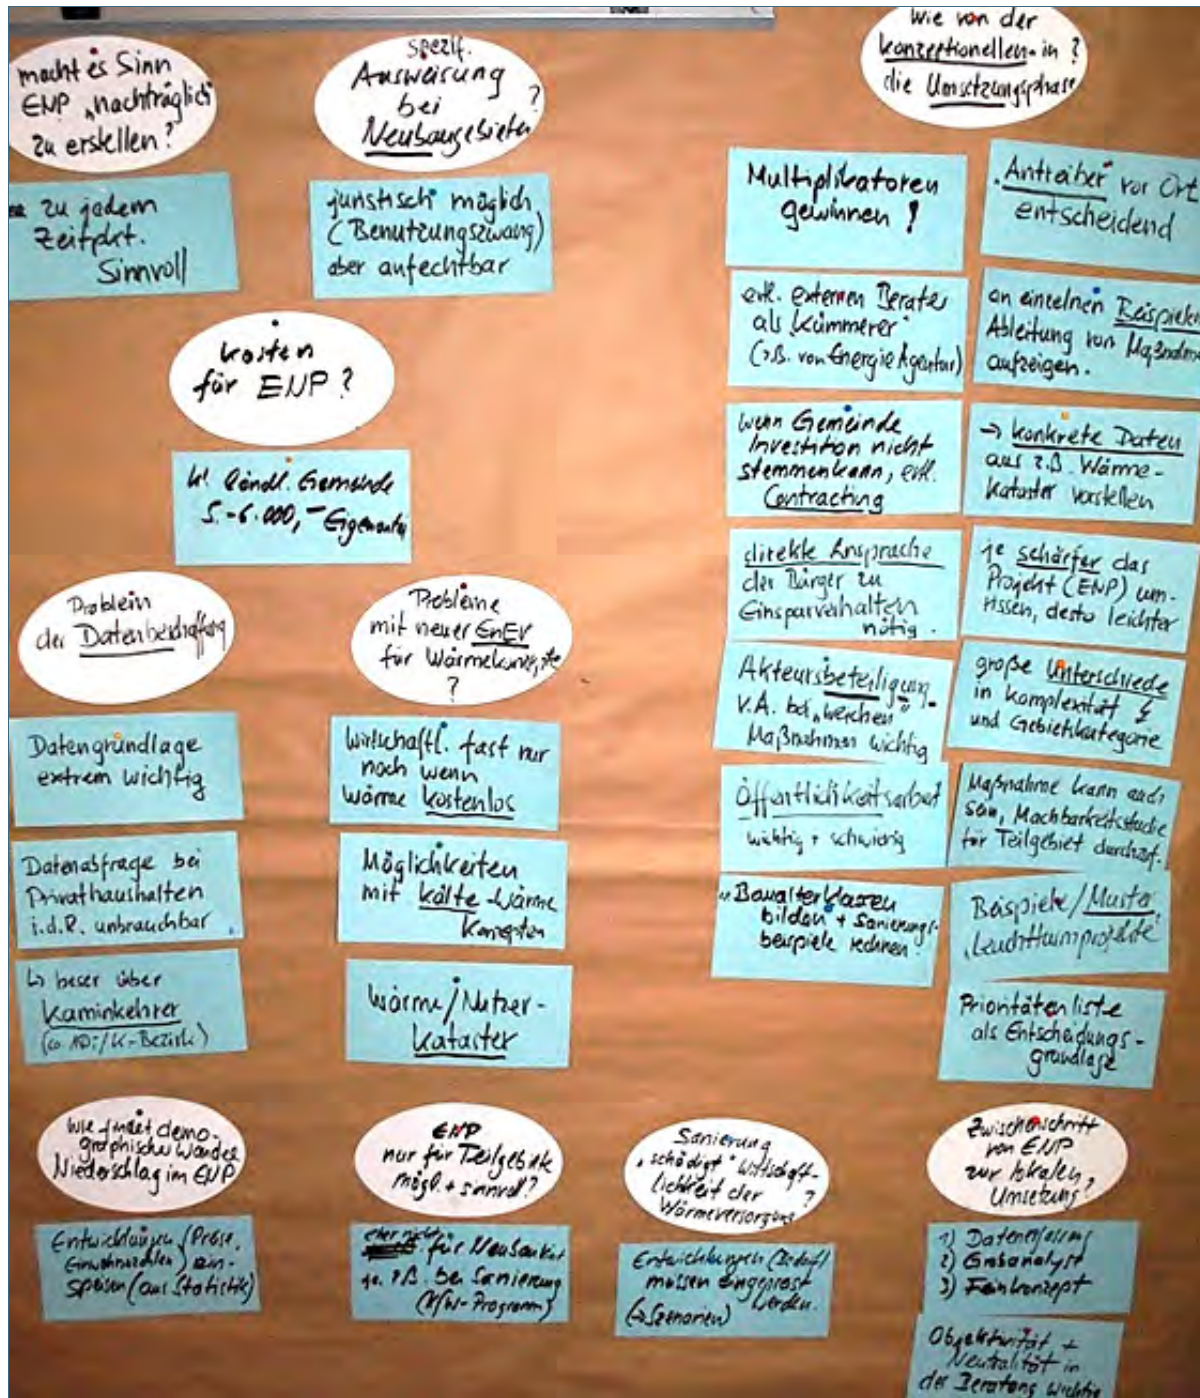 macht es Sinn
ENP „nachträglich"
zu erstellen?
zu jedem
Zeitpkt.
Sinnvoll
spezif.
Ausweisung
bei ?
Neubaugebieten
juristisch möglich
(Benutzungszwang)
aber anfechtbar
Kosten
für ENP?
kl. ländl. Gemeinde
5.-6.000,-
Problem
der Datenbeschaffung
Datengrundlage
extrem wichtig
Datenabfrage bei
Privathaushalten
i.d.R. unbrauchbar
↳ besser über
Kaminkehrer
Probleme
mit neuer EnEV
für
?
Wirtschaftl. fast nur
noch wenn
Wärme kostenlos
Möglichkeiten
mit Kälte-Wärme
Konzepten
Wärme/Nutzer-
kataster
Wie von der
konzeptionellen in ?
die Umsetzungsphase
Multiplikatoren
gewinnen!
evtl. externen Berater
als „Kümmerer"
(z.B. von Energie Agentur)
wenn Gemeinde
Investition nicht
stemmen kann, evtl.
Contracting
direkte Ansprache
der Bürger zu
Einsparverhalten
nötig.
Akteursbeteiligung
v.A. bei „weichen"
Maßnahmen wichtig
Öffentlichkeitsarbeit
wichtig + schwierig
bilden + Sanierungs-
beispiele rechnen
„Antreiber" vor Ort
entscheidend
an einzelnen Beispielen
Ableitung von Maßnahmen
aufzeigen.
→ konkrete Daten
aus z.B. Wärme-
kataster vorstellen
je schärfer das
Projekt (ENP) um-
rissen, desto leichter
große Unterschiede
in Komplexität
und Gebietskategorie
Maßnahme kann auch
sein, Machbarkeitsstudie
für Teilgebiet
Beispiele/Muster
„Leuchtturmprojekte"
Prioritätenliste
als Entscheidungs-
grundlage
Wie findet demo-
graphischer Wandel
Niederschlag im ENP
Entwicklungen
Einwohnerzahlen) ein-
speisen (aus Statistik)
ENP
nur für Teilgebiete
mögl. + sinnvoll?
eher nicht für
z.B. bei Sanierung
(KfW-Programm)
Sanierung
„schädigt" Wirtschaft-
lichkeit der ?
Wärmeversorgung
Entwicklungen (Bedarf)
müssen eingepreist
werden.
(→ Szenarien)
Zwischenschritt
von ENP
zur lokalen
Umsetzung?
1) Datenerfassung
2) Grobanalyse
3) Feinkonzept
Objektivität +
Neutralität in
der Beratung wichtig